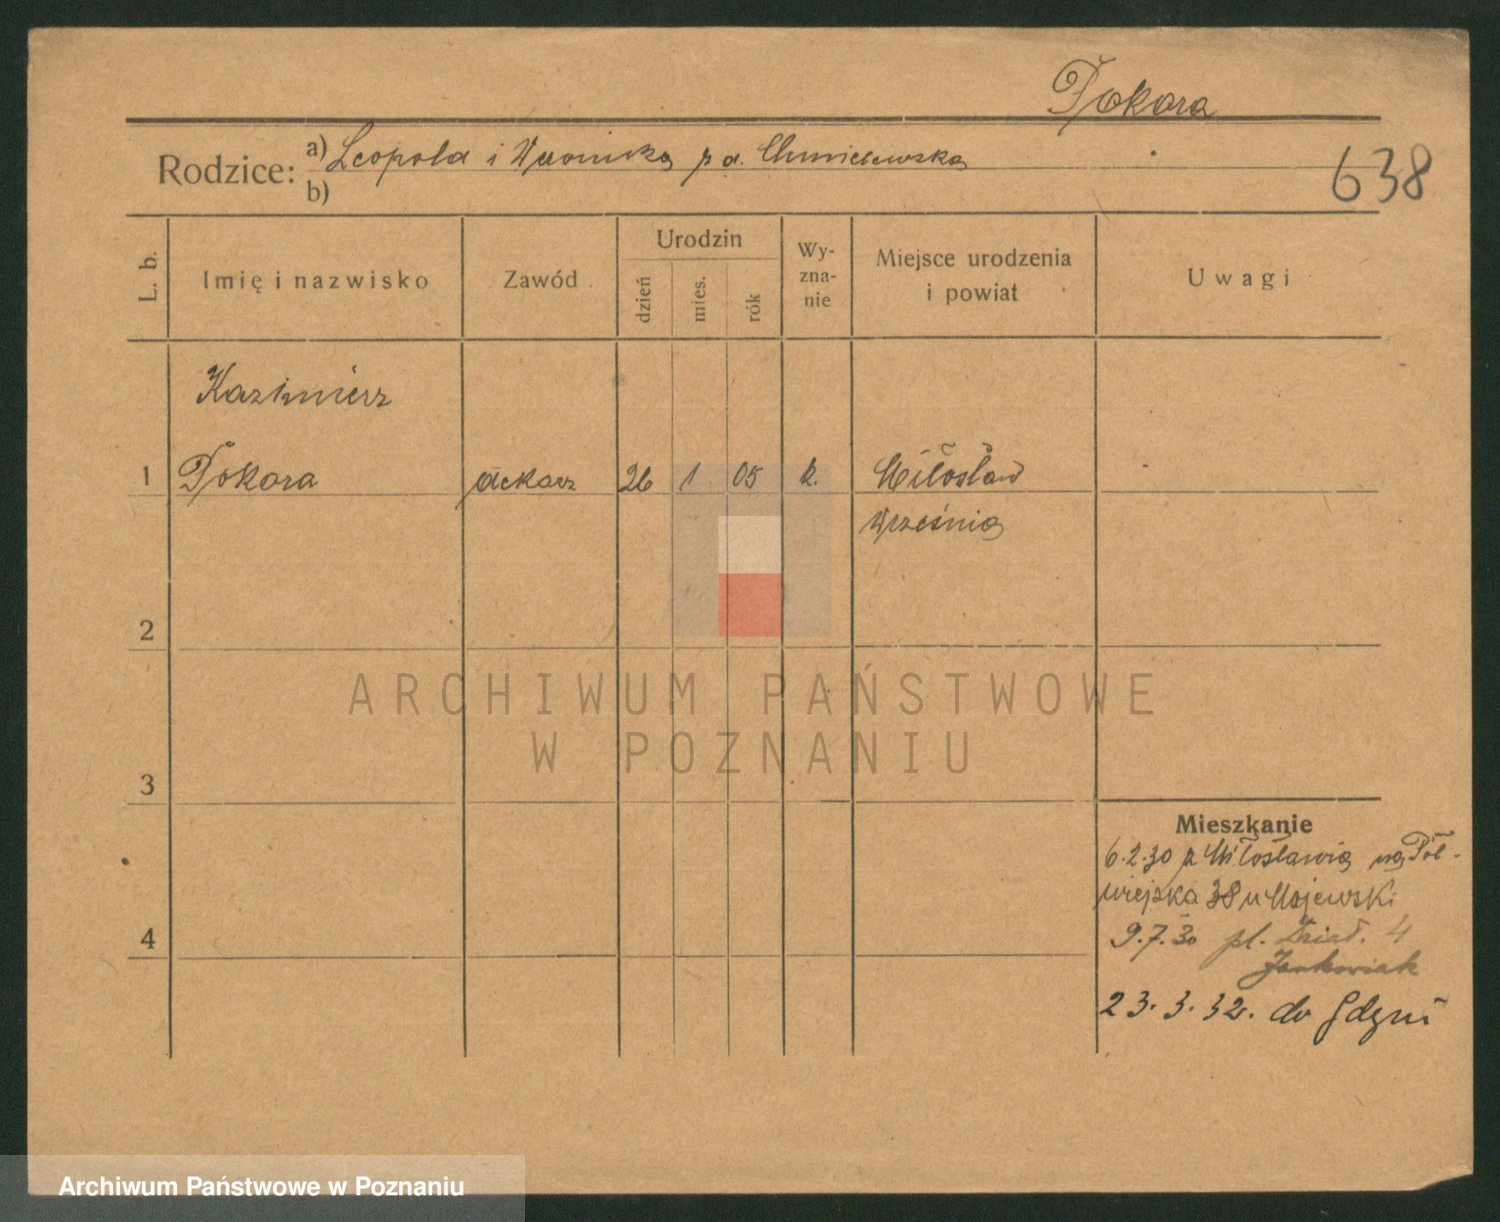 Pokora
Rodzice: a) Leopold i Weronika z d. Chmielewska
638
b)
L. b.
Imię i nazwisko
Zawód
Urodzin
dzień
mies.
rók
Wy-
zna-
nie
Miejsce urodzenia
i powiat
Uwagi
Kazimierz
1 Pokora 26 1 05 k. Miłosław
Września
2
ARCHIWUM PAŃSTWOWE
W POZNANIU
3
Mieszkanie
6.2.30 z Miłosławia na Pół-
wiejska 38 u Majewski
4
9.7.30 pl. Dział. 4
Jankowiak
23.3.32. do Gdyni
Archiwum Państwowe w Poznaniu